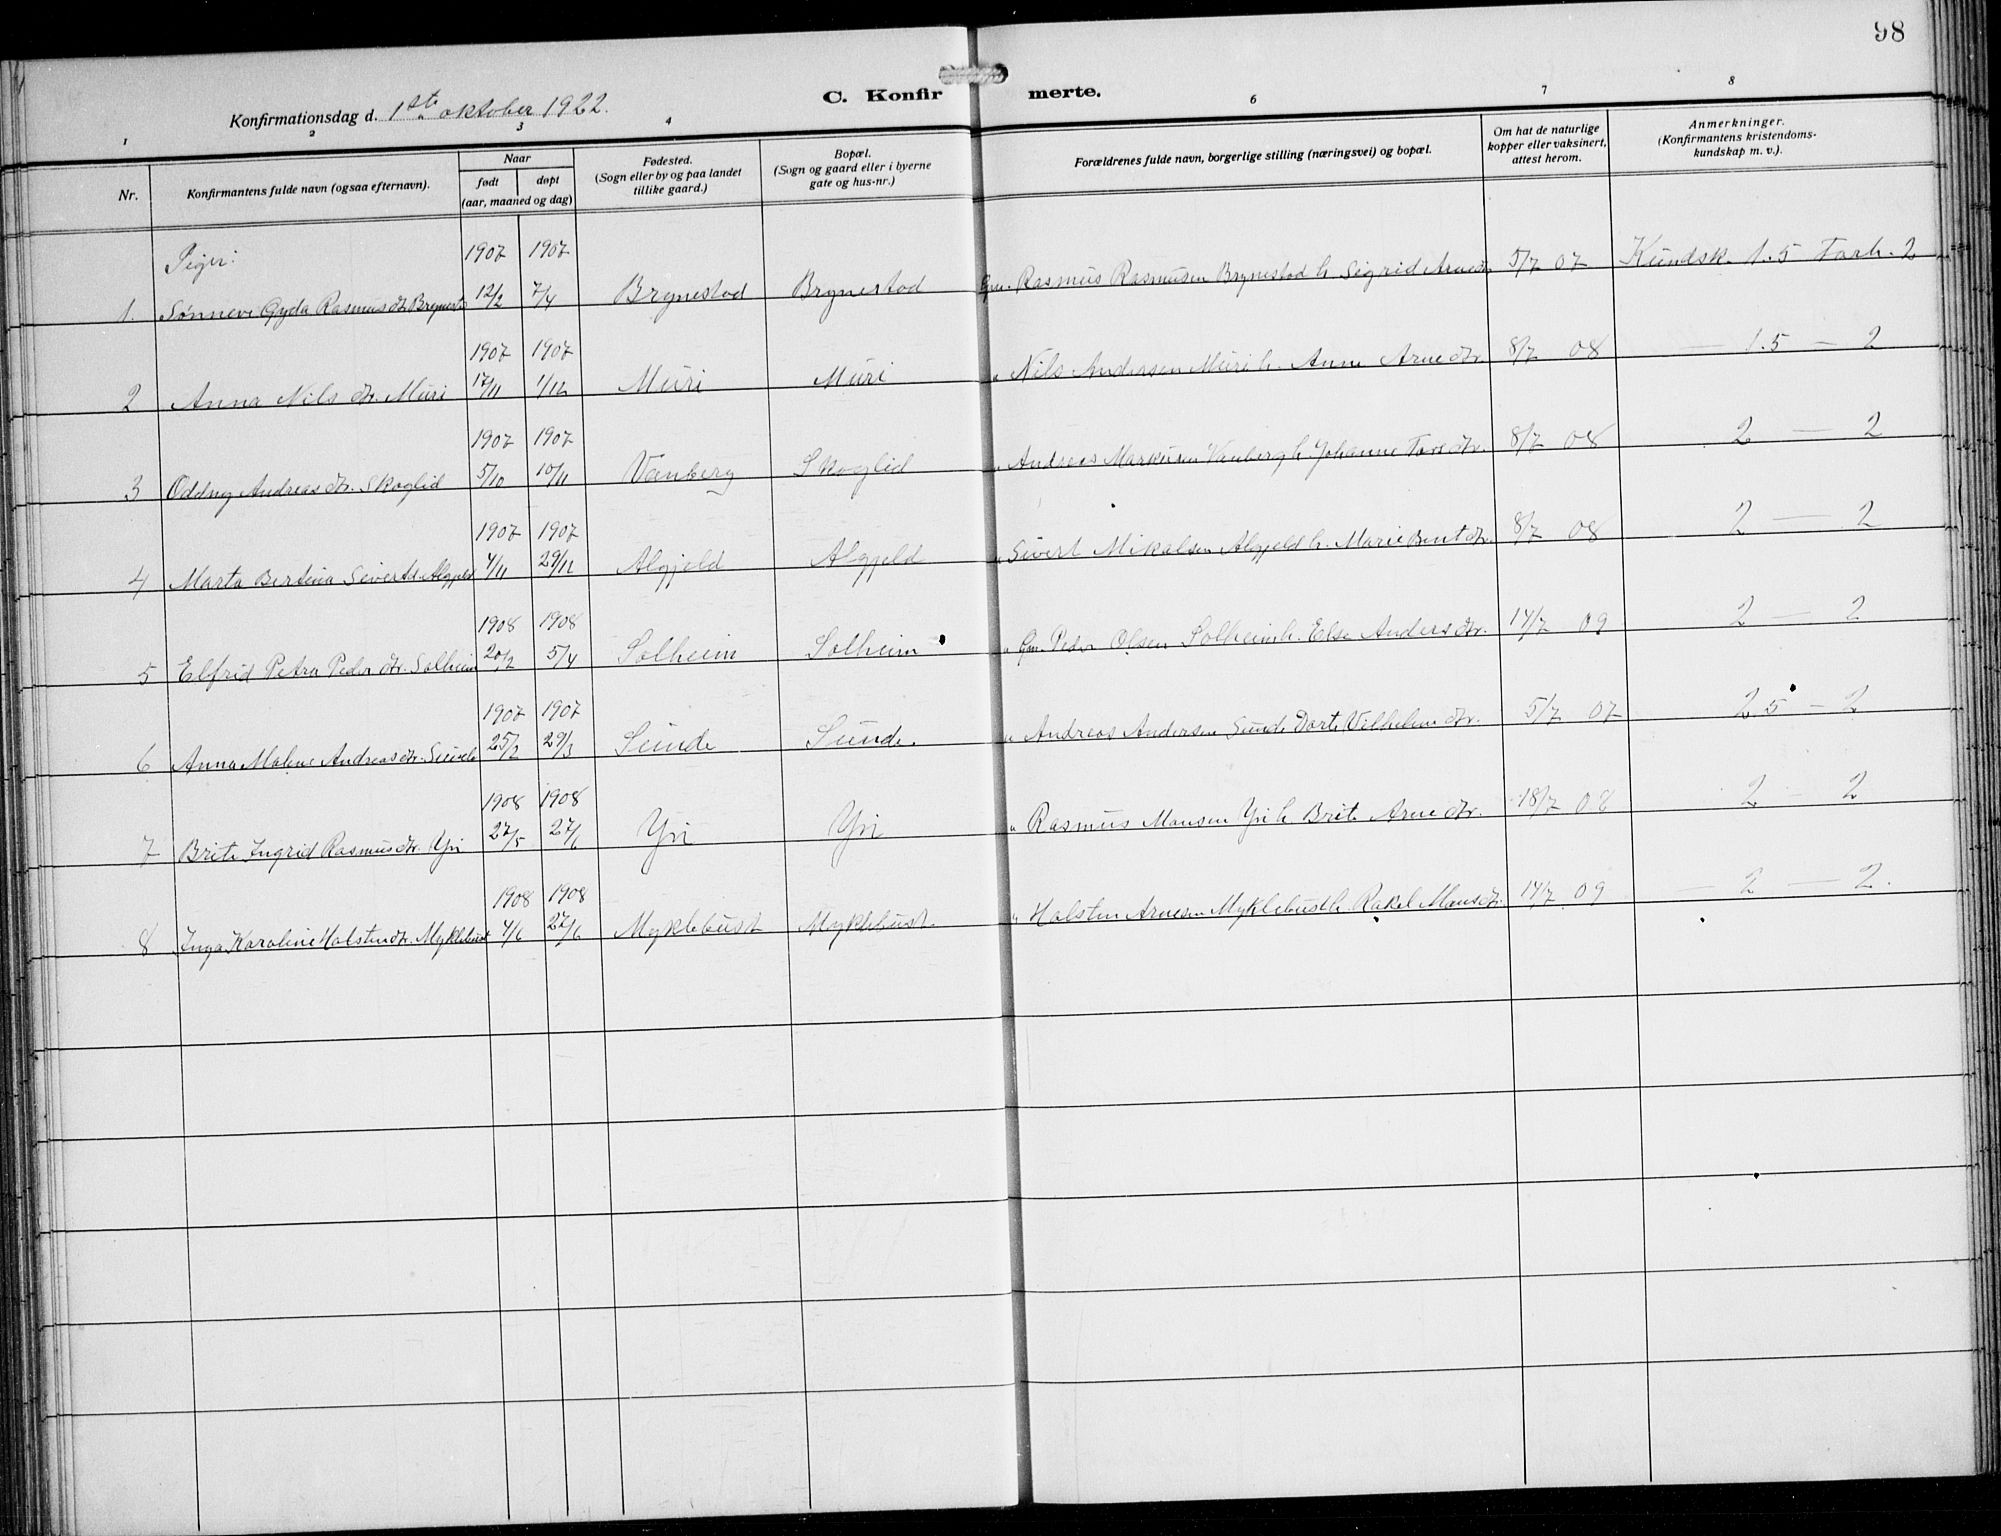 98
C. Konfirmerte.
Konfirmationsdag d. 1ste oktober 1922.
1 2 3 4 6 7 8
Nr.
Konfirmantens fulde navn (ogsaa efternavn).
Naar
født
døpt
(aar, maaned og dag)
Fødested.
(Sogn eller by og paa landet
tillike gaard.)
Bopæl.
(Sogn og gaard eller i byerne
gate og hus-nr.)
Forældrenes fulde navn, borgerlige stilling (næringsvei) og bopæl.
Om hat de naturlige
kopper eller vaksinert,
attest herom.
Anmerkninger.
(Konfirmantens kristendoms-
kundskap m. v.).
Piger:
1907 1907
1. Sønneve Gyda Rasmusdtr. Brynestad 12/2 7/4 Brynestad Brynestad Gm. Rasmus Rasmusen Brynestad h. Sigrid Arnedtr. 5/7 07 Kundsk. 1.5 Forh. 2
1907 1907
2 Anna Nilsdtr. Muri 17/11 1/12 Muri Muri " Nils Andersen Muri h. Anne Arnedtr. 8/7 08 — 1.5 — 2
1907 1907
3 Oddny Andreasdtr. Skoglid 5/10 10/11 Vanberg Skoglid " Andreas Markusen Vanberg h. Johanne Toredtr. 8/7 08 2 — 2
1907 1907
4 Marta Bertina Sivertd. Algjeld 4/11 29/12 Algjeld Algjeld " Sivert Mikalsen Algjeld h. Marie Bentdtr. 8/7 08 2 — 2
1908 1908
5 Elfrid Petra Pederdtr. Solheim 20/2 5/4 Solheim Solheim " Gm. Peder Olsen Solheim h. Else Andersdtr. 14/7 09 2 — 2
1907 1907
6 Anna Malene Andreasdtr. Sunde 25/2 29/3 Sunde Sunde. " Andreas Andersen Sunde Dorte Vilhelmsdtr. 5/7 07 2.5 — 2
1908 1908
7 Brite Ingrid Rasmusdtr. Yri 27/5 27/6 Yri Yri " Rasmus Monsen Yri h Brite Arnedtr. 18/7 08 2 — 2
1908 1908
8 Inga Karoline Holstendtr. Myklebust 4/6 27/6 Myklebust Myklebust. " Holsten Arnesen Myklebust h. Rakel Monsdtr. 14/7 09 — 2 — 2.